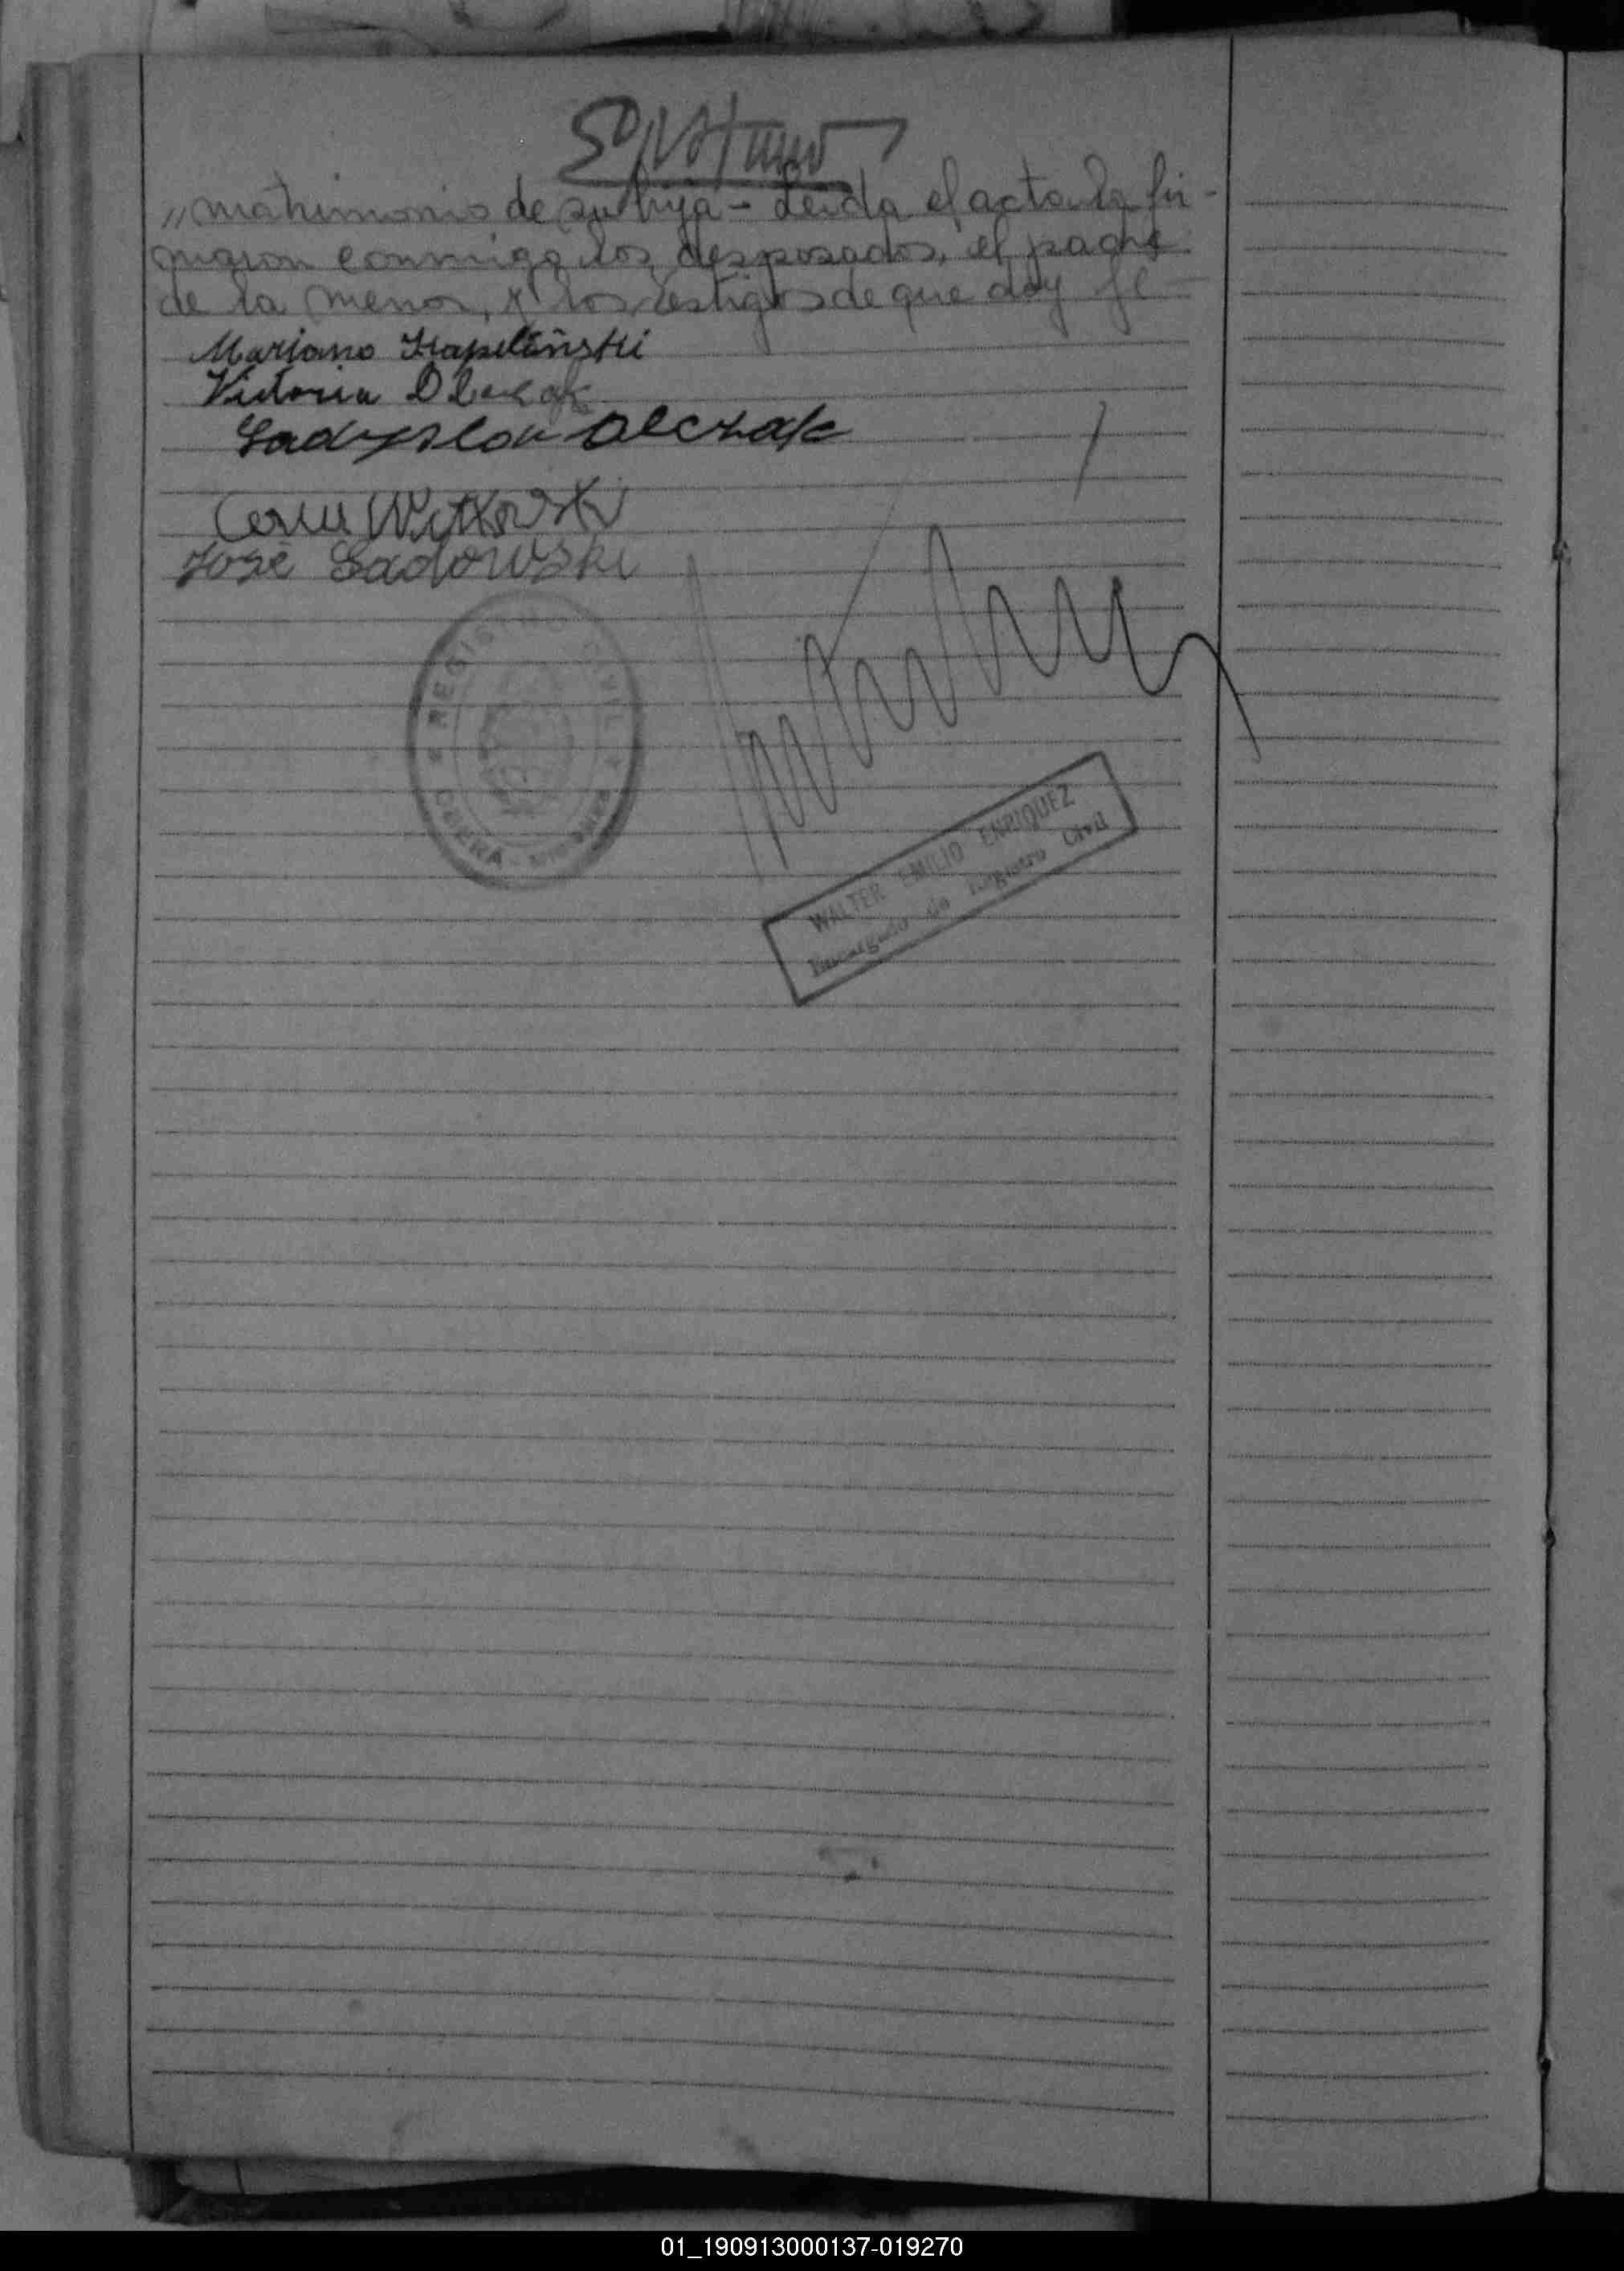 „matrimonio de su hija - Leida el acta la fir-
maron conmigo los desposados, el padre
de la menor, y los testigos de que doy fe -
Mariano Kapelinski
Victoria Olczak
Ladyslou Olczak
Witkowski
José Sadowski
REGISTRO CIVIL
OBERA
WALTER EMILIO ENRIQUEZ
Encargado de Registro Civil
01_190913000137-019270